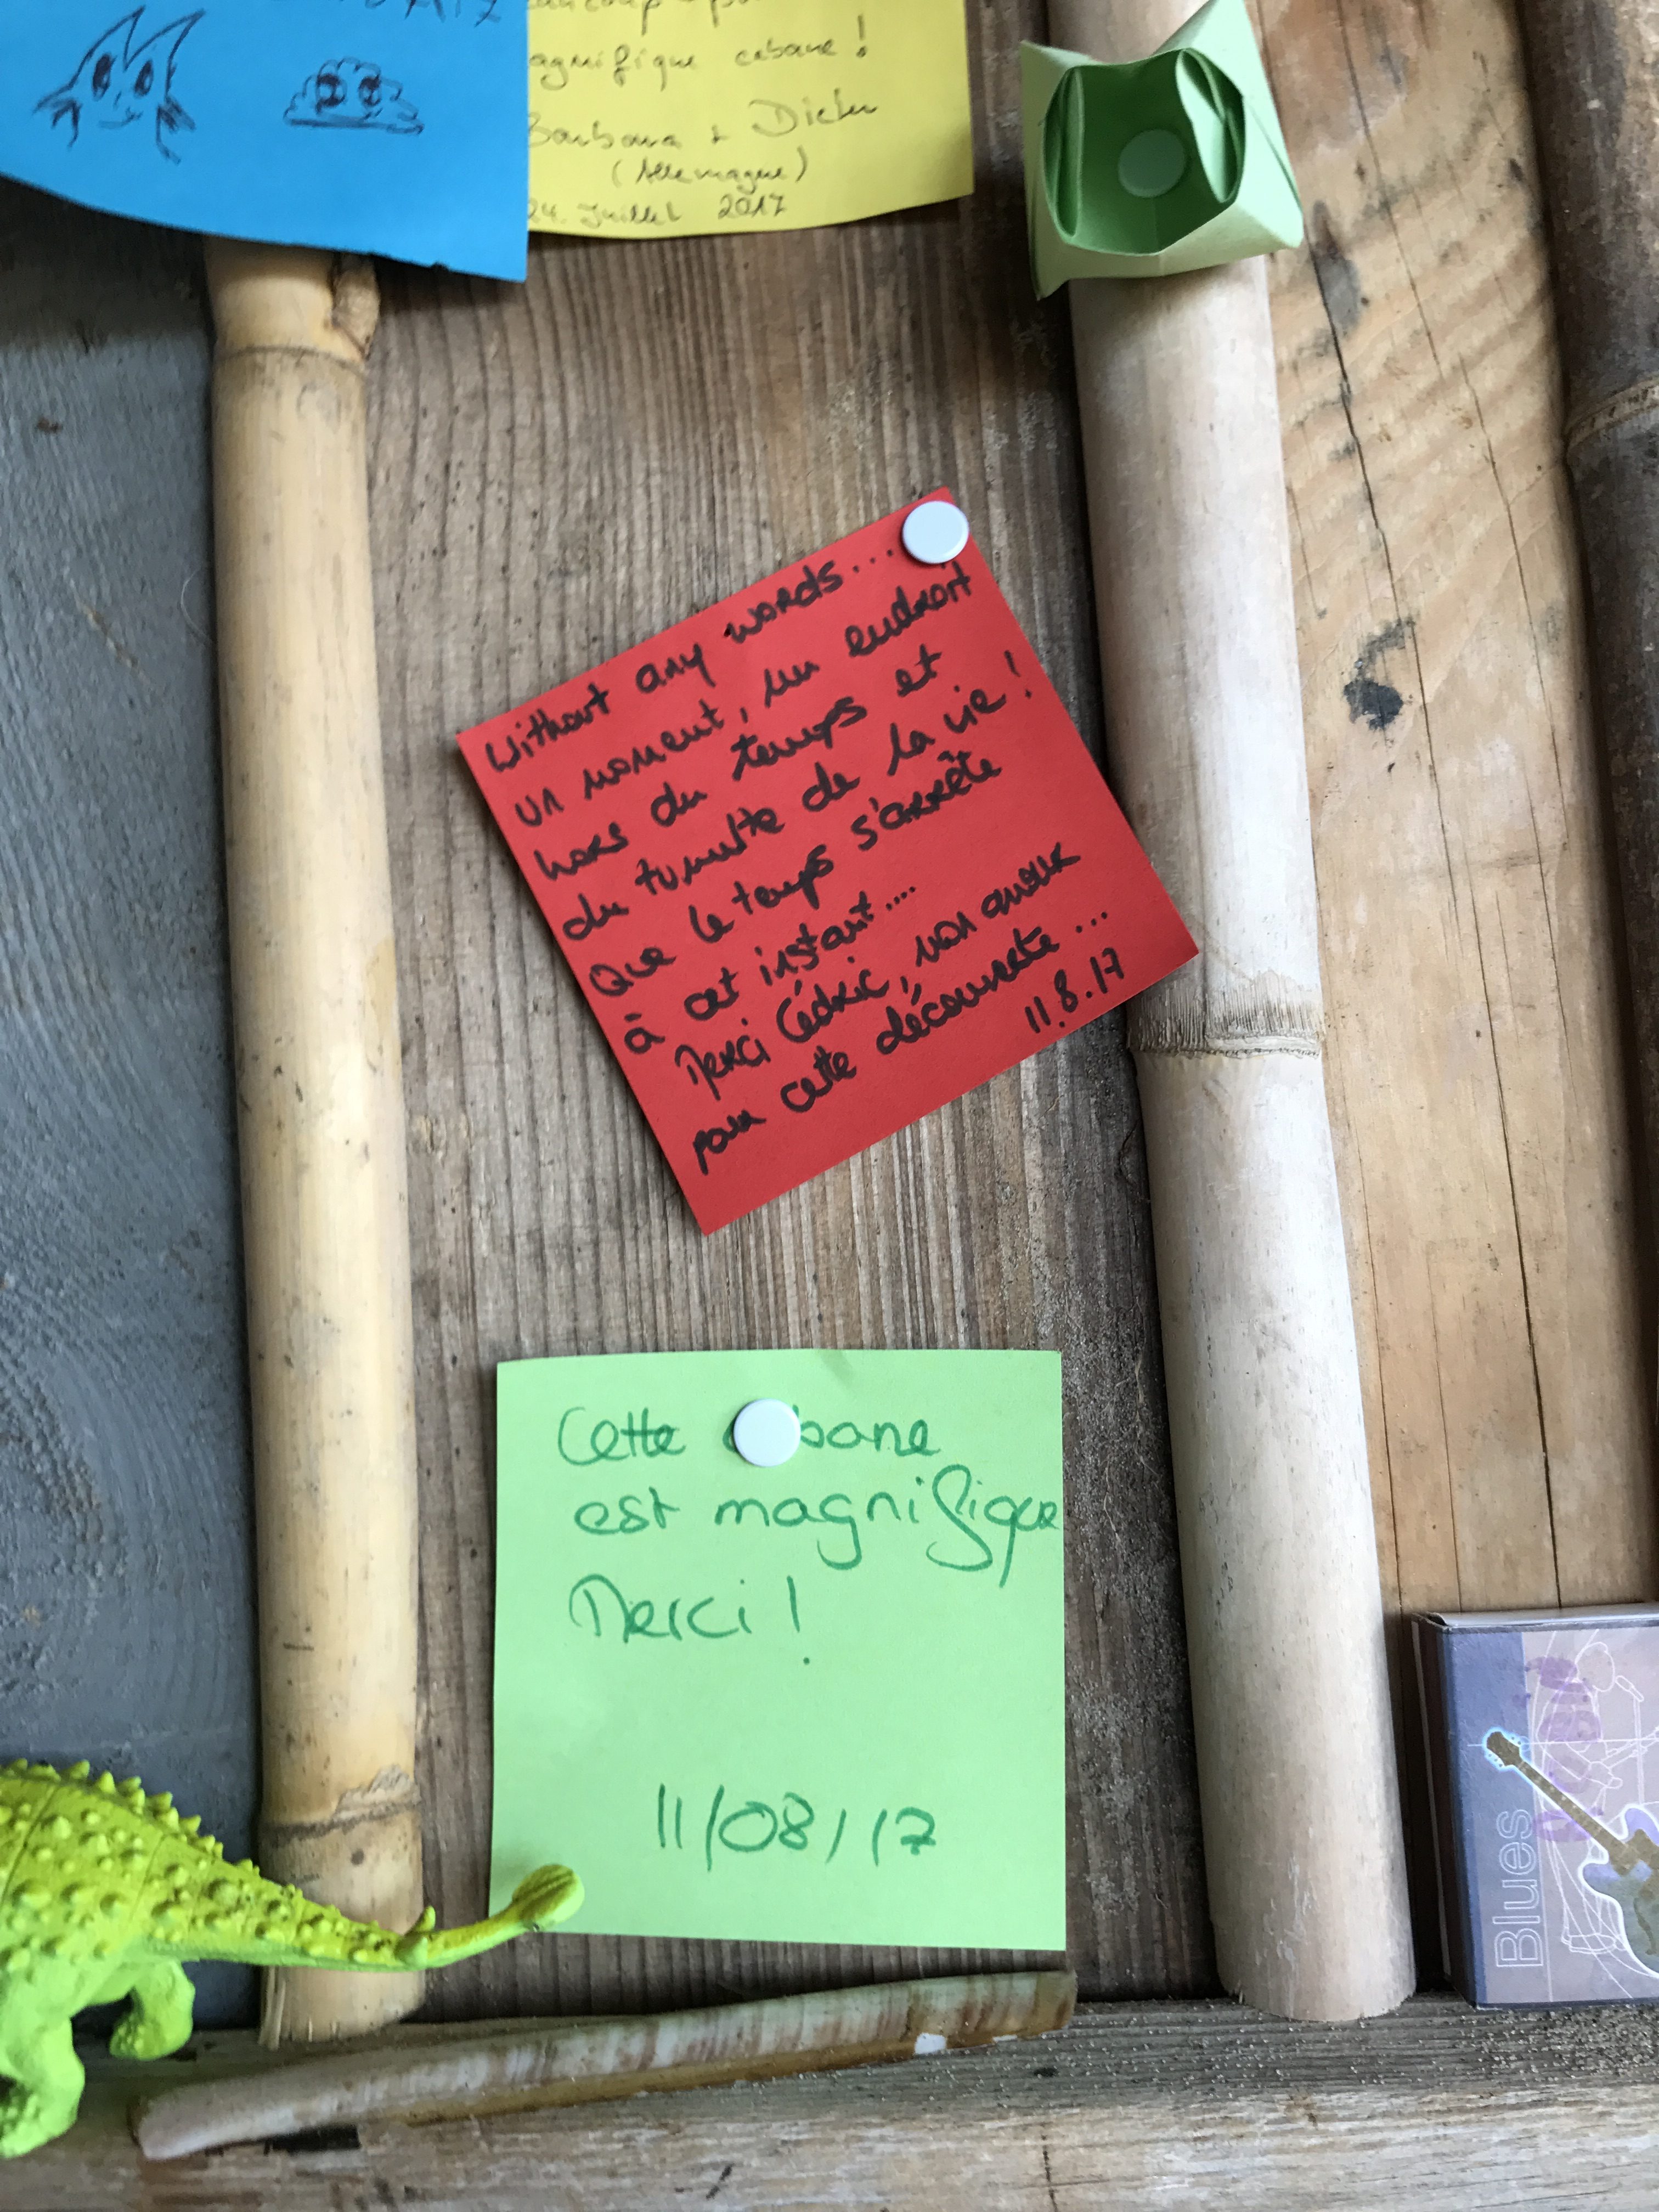 agnifique cabane !
Barbara + Dieter
(Allemagne)
24. Juillet 2017
Without any words...
un moment, un endroit
hors du temps et
du tumulte de la vie !
Que le temps s'arrête
à cet instant....
Merci Cédric, mon amour
pour cette découverte...
11.8.17
Cette bane
est magnifique
Merci !
11/08/17
Blues